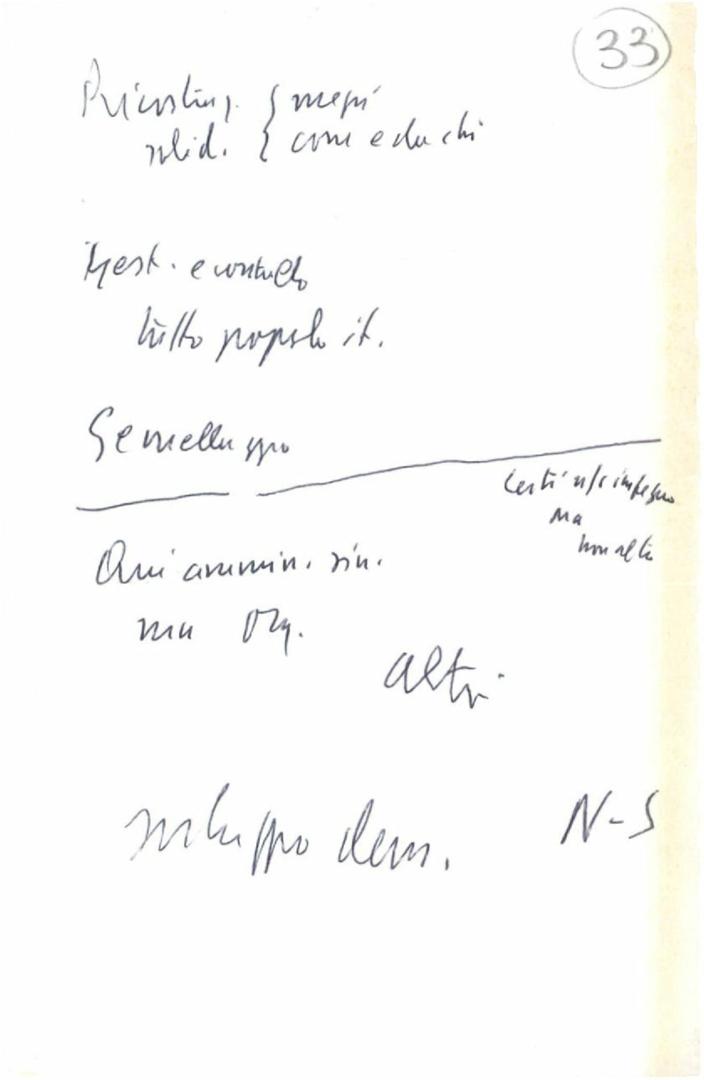 33
Ricostruz. { mezzi
solid. { come e da chi
Gest. e controllo
tutto popolo it.
Gemellaggio
certi n/s impegno
ma
non alti
Qui ammin. sin.
ma Org.
altri
sviluppo dem. N-S